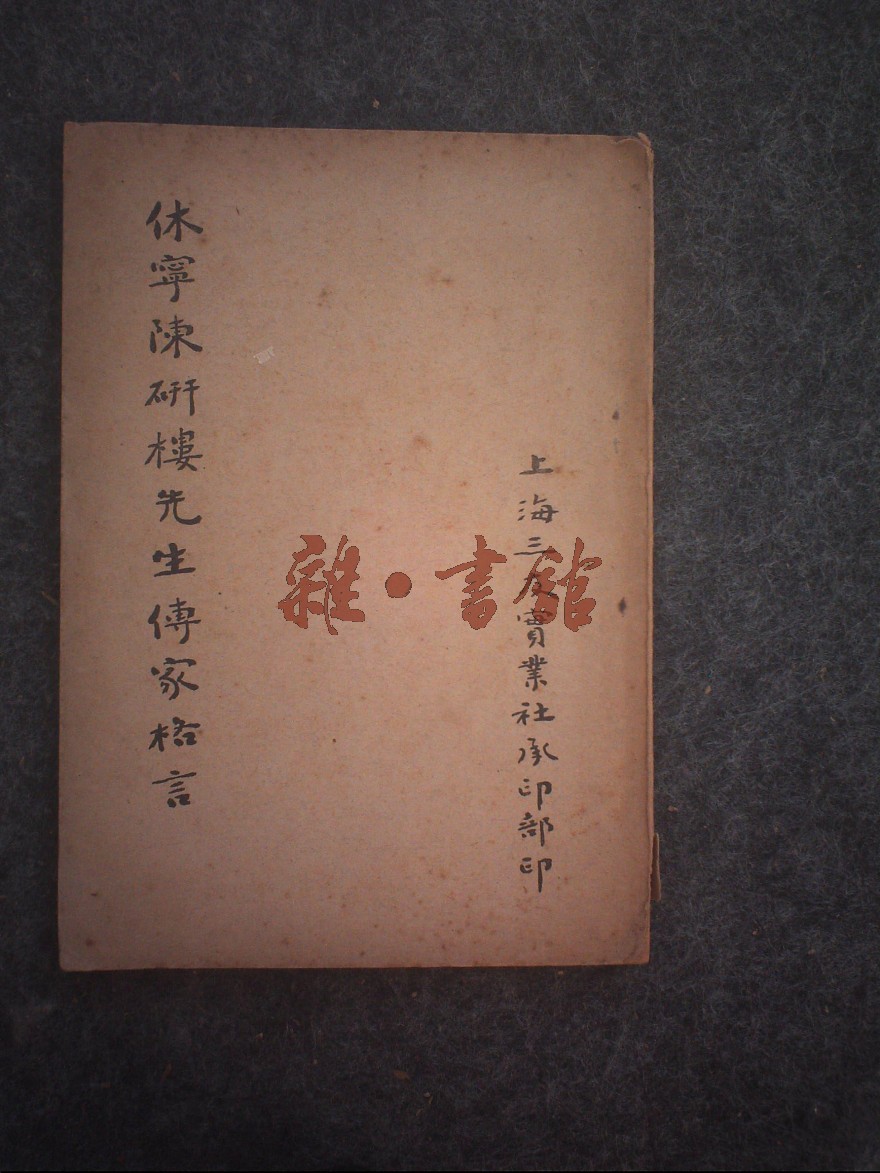 上海三友實業社承印部印
休寧陳研樓先生傳家格言
雜·書館